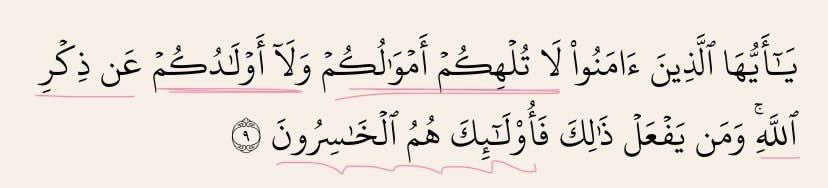 يَـٰٓأَيُّهَا ٱلَّذِينَ ءَامَنُوا۟ لَا تُلْهِكُمْ أَمْوَٰلُكُمْ وَلَآ أَوْلَـٰدُكُمْ عَن ذِكْرِ
ٱللَّهِ ۚ وَمَن يَفْعَلْ ذَٰلِكَ فَأُو۟لَـٰٓئِكَ هُمُ ٱلْخَـٰسِرُونَ ٩